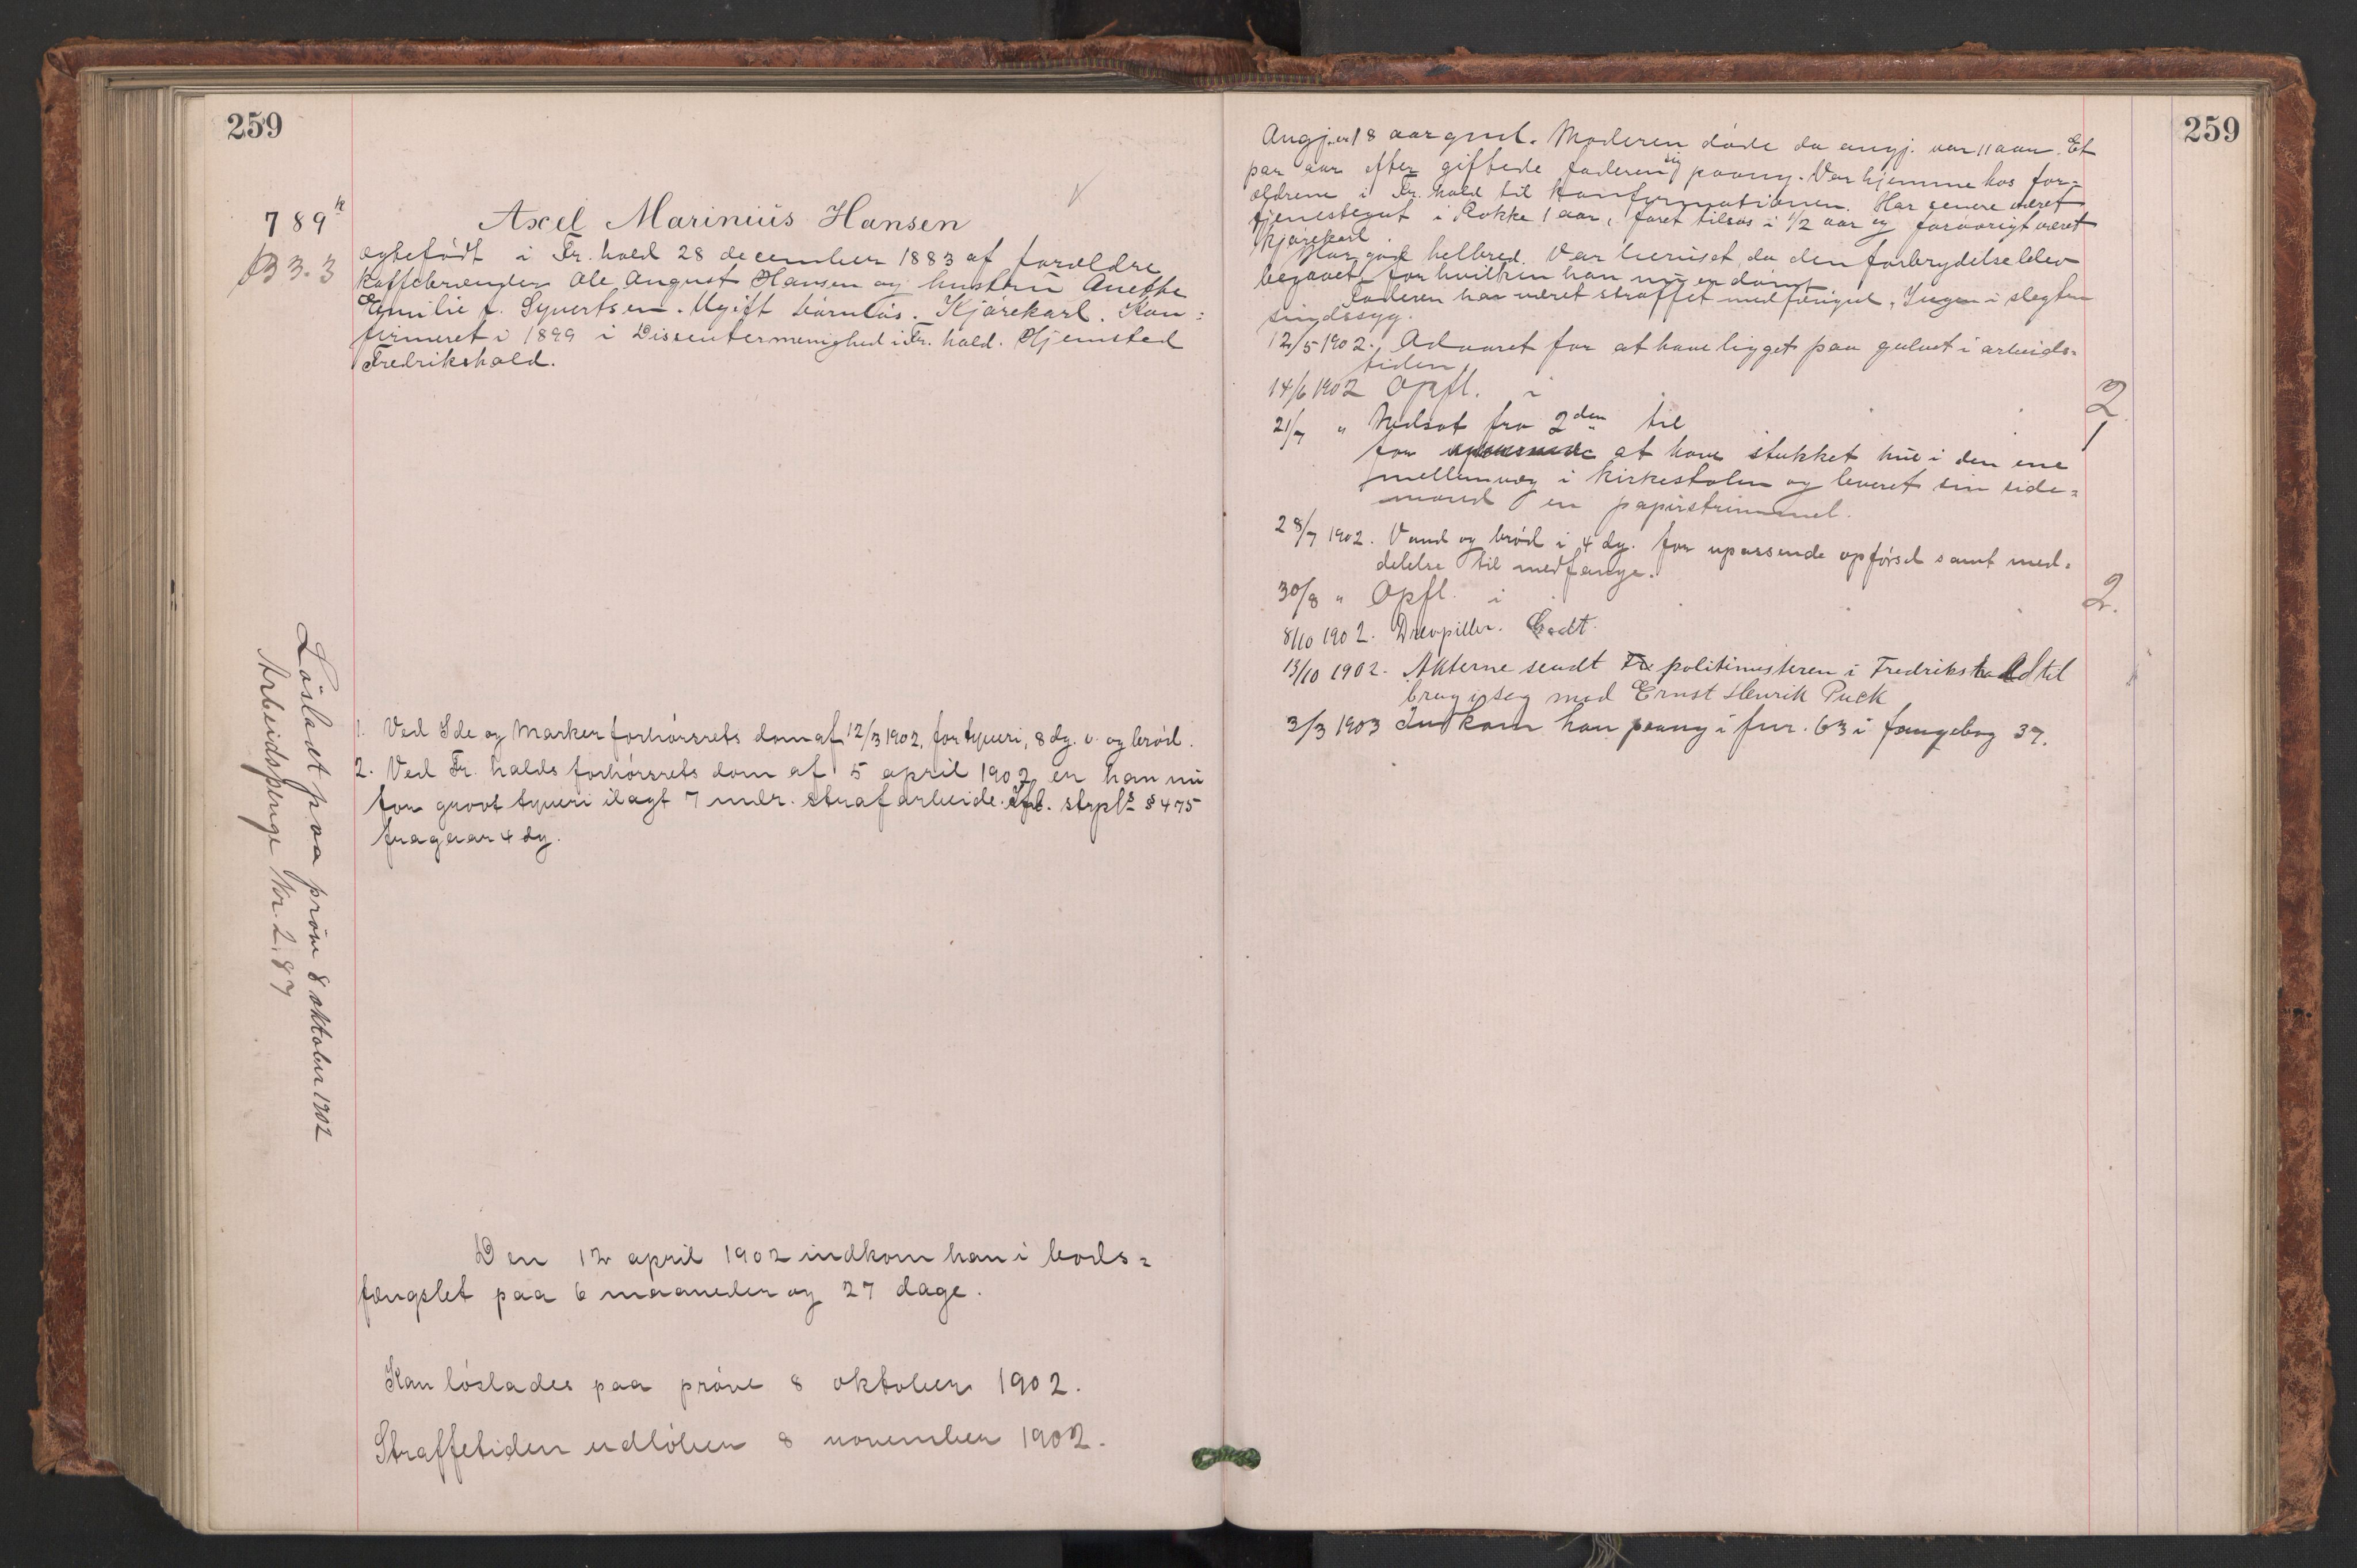 259
789 k
B 3.3
Axel Marinius Hansen
ægtefödt i Fr.hald 28 december 1883 af forældre
kaffebrænder Ole August Hansen og hustru Anethe
Emilie f. Syvertsen. Ugift barnlös. Kjörekarl. Kon=
firmeret i 1899 i Dissentermenighed i Fr.hald. Hjemsted
Fredrikshald.
1. Ved Ide og Marker forhörsrets dom af 12/3 1902, for tyveri, 8 dg. v. og bröd.
2. Ved Fr.halds forhörsrets dom af 5 april 1902 er han nu
for grovt tyveri ilagt 7 mdr. strafarbeide. Ifl. strpls § 475
fragaar 4 dg.
Lösladt paa pröve 8 oktober 1902
Arbeidspenge Kr. 2.87
Den 12 april 1902 indkom han i bods=
fængslet paa 6 maaneder og 27 dage.
Kan löslades paa pröve 8 oktober 1902.
Straffetiden udlöber 8 november 1902.
259
Angj. er 18 aar gml. Moderen döde da angj. var 11 aar. Et
par aar efter giftede faderen sig paany. Var hjemme hos for=
ældrene i Fr.hald til konfirmationen. Har senere været
tjenestegut i Rokke 1 aar, faret tilsös i 1/2 aar og forövrigt været
kjörekarl.
Har god helbred. Var beruset, da den forbrydelse blev
begaaet, for hvilken han nu er dömt.
Faderen har været straffet med fængsel. Ingen i slegten
sindssyg.
12/5 1902. Advaret for at have ligget paa gulvet i arbeids=
tiden
14/6 1902 Opfl. i 2
21/7 " Nedsat fra 2den til 1
for at have stukket hul i den ene
mellemvæg i kirkestolen og leveret sin side=
mand en papirstrimmel.
28/7 1902. Vand og bröd i 4 dg. for upassende opförsel samt med=
delelse til medfange.
30/8 " Opfl. i 2.
8/10 1902. Drevpiller. Godt.
13/10 1902. Akterne sendt politimesteren i Fredrikshald til
brug i sag mod Ernst Henrik Puck
3/3 1903 Indkom han paany i fnr. 63 i fangebog 37.